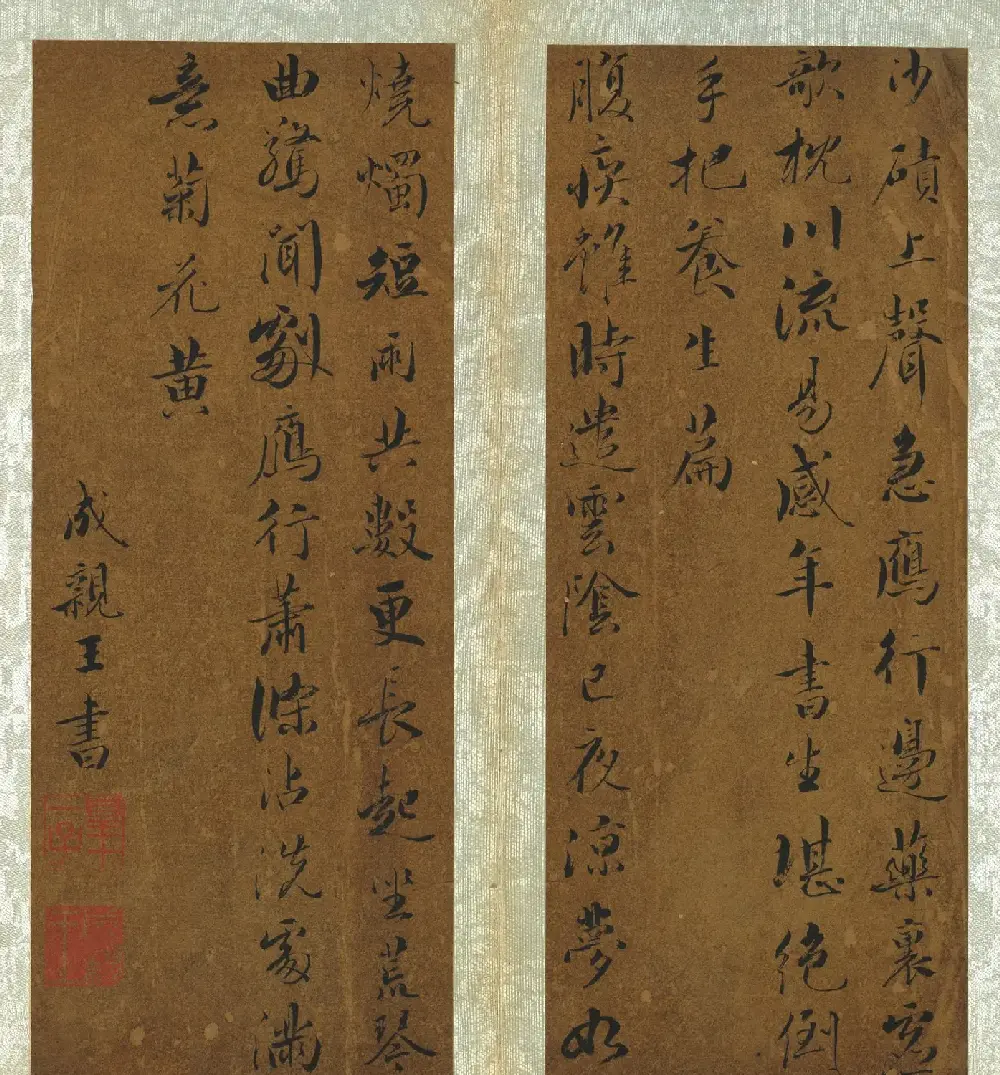 沙磧上聲急鴈行邊藥裹
欹枕川流易感年書生堪絕倒
手把養生篇
腹疾維時遣雲陰已夜涼夢如
燒燭短雨共數更長起坐荒琴
曲驚聞劉鴈行蕭條沾洗處滿
意菊花黃
成親王書